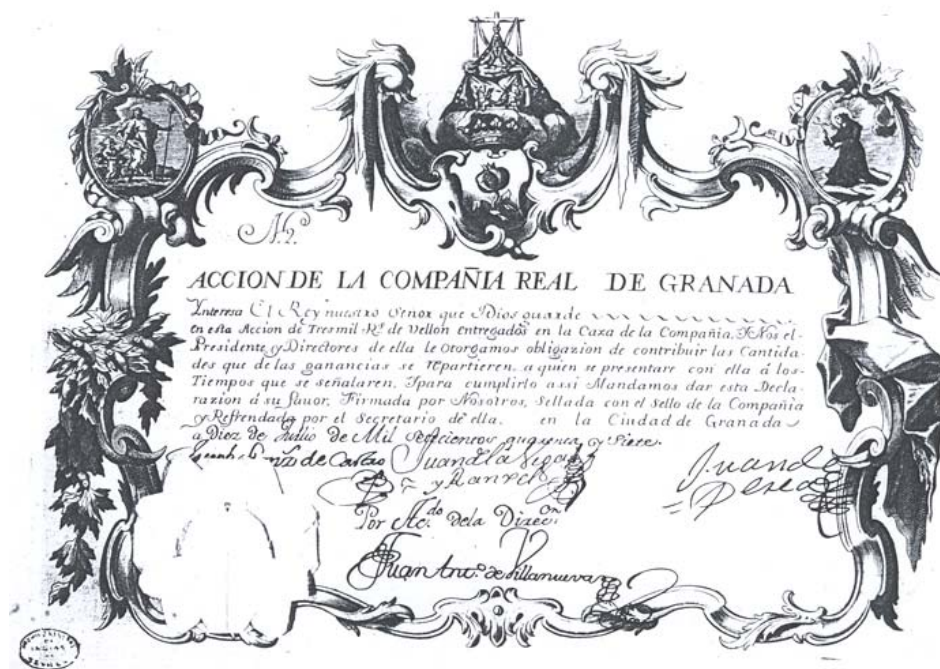 N.º 2.
ACCION DE LA COMPAÑIA REAL DE GRANADA
Ynteresa El Rey nuestro Señor que Dios guarde
en esta Accion de Tresmil R.ˢ de Vellon entregados en la Caxa de la Compañia. Y Nos el
Presidente, y Directores de ella le otorgamos obligazion de contribuir las Cantida-
des que de las ganancias se repartieren, a quien se presentare con ella á los
Tiempos que se señalaren, Ypara cumplirlo assi Mandamos dar esta Decla-
razion á su favor, Firmada por Nosotros, Sellada con el Sello de la Compañia
y Refrendada por el Secretario de ella. en la Ciudad de Granada
a Diez de Julio de Mil setecientos quarenta y Siete.
de Castro Juan de la Vega Juan de
y
Por Ac.ᵈᵒ dela Direc.ᵒⁿ
Juan Ant.º de Villanueva
INDIAS
SEVILLA